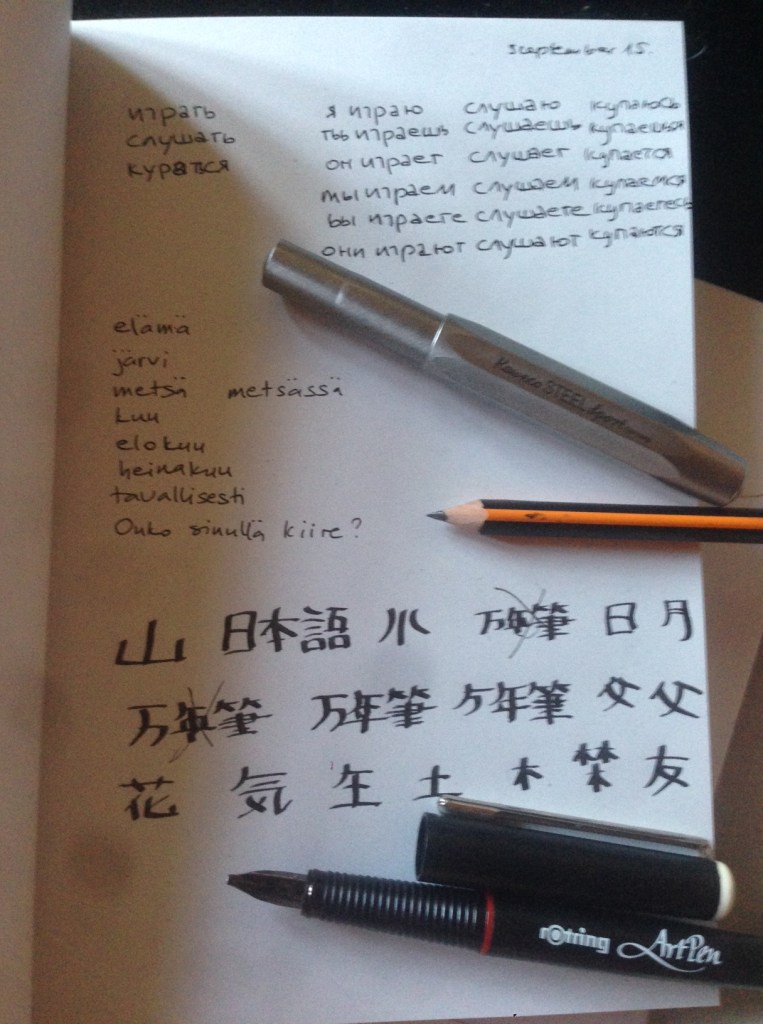 September 15.
играть я играю слушаю купаюсь
слушать ты играешь слушаешь купаешься
купаться он играет слушает купается
мы играем слушаем купаемся
вы играете слушаете купаетесь
они играют слушают купаются
elämä
järvi
metsä metsässä
kuu
elokuu
heinäkuu
tavallisesti
Onko sinullä kiire?
Kaweco STEEL Sport
山 日本語 小 万年筆 日 月
万年筆 万年筆 万年筆 父 父
花 気 生 土 木 林 友
rotring ArtPen